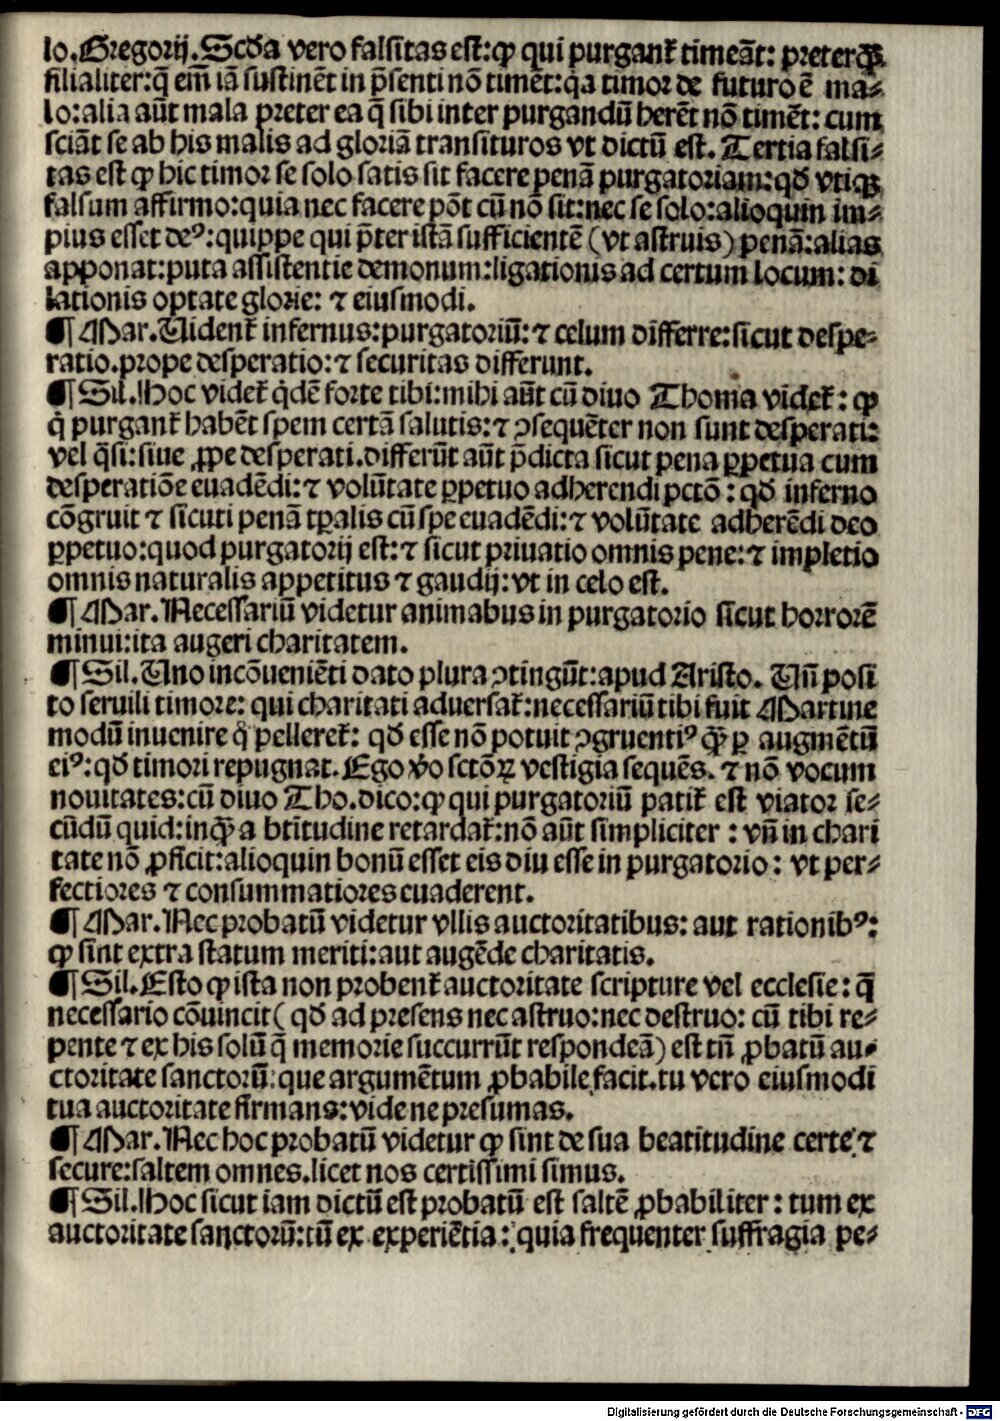 lo. Gregorij. Scđa vero falsitas est: ꝙ qui purgant̃ timeãt: preterꝙꝫ
filialiter: q̃ em̃ iã sustinẽt in p̃senti nõ timẽt: q̃a timor de futuro ẽ ma⸗
lo: alia aũt mala preter ea q̃ sibi inter purgandũ herẽt nõ timẽt: cum
sciãt se ab his malis ad gloriã transituros vt dictũ est. Tertia falsi⸗
tas est ꝙ hic timor se solo satis sit facere penã purgatoriam: qđ vtiqꝫ
falsum affirmo: quia nec facere põt cũ nõ sit: nec se solo: alioquin im⸗
pius esset deꝰ: quippe qui p̃ter istã sufficientẽ (vt astruis) penã: alias
apponat: puta assistentie demonum: ligationis ad certum locum: di
lationis optate glorie: ⁊ eiusmodi.
¶ Mar. Uident̃ infernus: purgatoriũ: ⁊ celum differre: sicut despe⸗
ratio. prope desperatio: ⁊ securitas differunt.
¶ Sil. Hoc videt̃ q̃dẽ forte tibi: mihi aũt cũ diuo Thoma videt̃: ꝙ
q̃ purgant̃ habẽt spem certã salutis: ⁊ ꝯsequẽter non sunt desperati:
vel q̃si: siue ꝓpe desperati. differũt aũt p̃dicta sicut pena ꝑpetua cum
desperatiõe euadẽdi: ⁊ volũtate ꝑpetuo adherendi pctõ: qđ inferno
cõgruit ⁊ sicuti penã tꝑalis cũ spe euadẽdi: ⁊ volũtate adherẽdi deo
ꝑpetuo: quod purgatorij est: ⁊ sicut priuatio omnis pene: ⁊ impletio
omnis naturalis appetitus ⁊ gaudij: vt in celo est.
¶ Mar. Necessariũ videtur animabus in purgatorio sicut horrorẽ
minui: ita augeri charitatem.
¶ Sil. Uno incõueniẽti dato plura ꝯtingũt: apud Aristo. Un̄ posi
to seruili timore: qui charitati aduersat̃: necessariũ tibi fuit Martine
modũ inuenire q̊ pelleret̃: qđ esse nõ potuit ꝯgruentiꝰ ꝙ̃ ꝑ augmẽtũ
eiꝰ: qđ timori repugnat. Ego v̊o sctõꝝ vestigia sequẽs. ⁊ nõ vocum
nouitates: cũ diuo Tho. dico: ꝙ qui purgatoriũ patit̃ est viator se⸗
cũdũ quid: inꝙ̃ a btĩtudine retardat̃: nõ aũt simpliciter: vn̄ in chari
tate nõ ꝓficit: alioquin bonũ esset eis diu esse in purgatorio: vt per⸗
fectiores ⁊ consummatiores euaderent.
¶ Mar. Nec probatũ videtur vllis auctoritatibus: aut rationibꝰ:
ꝙ sint extra statum meriti: aut augẽde charitatis.
¶ Sil. Esto ꝙ ista non probent̃ auctoritate scripture vel ecclesie: q̃
necessario cõuincit (qđ ad presens nec astruo: nec destruo: cũ tibi re⸗
pente ⁊ ex his solũ q̃ memorie succurrũt respondeã) est tñ ꝓbatũ au⸗
ctoritate sanctorũ: que argumẽtum ꝓbabile facit. tu vero eiusmodi
tua auctoritate firmans: vide ne presumas.
¶ Mar. Nec hoc probatũ videtur ꝙ sint de sua beatitudine certe ⁊
secure: saltem omnes. licet nos certissimi simus.
¶ Sil. Hoc sicut iam dictũ est probatũ est saltẽ ꝓbabiliter: tum ex
auctoritate sanctorũ: tũ ex experiẽtia: quia frequenter suffragia pe⸗
Digitalisierung gefördert durch die Deutsche Forschungsgemeinschaft - DFG